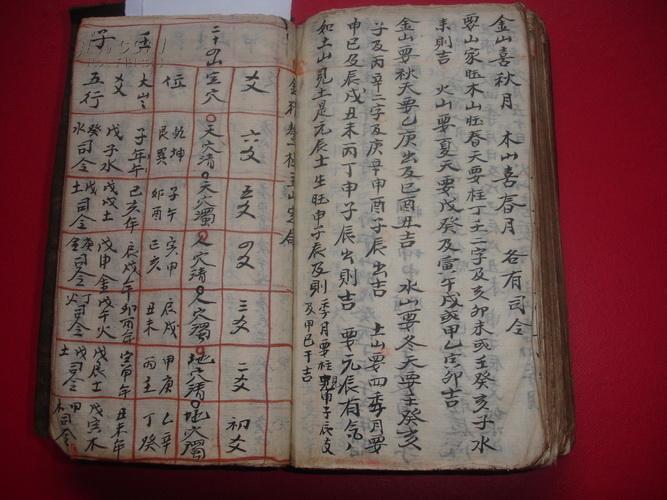 金山喜秋月 木山喜春月 各有司令
要山家旺木山旺春天要柱丁壬二字及亥卯未或壬癸亥子水
来則吉 火山要夏天要戊癸及寅午戌或甲乙寅卯吉
金山要秋天要乙庚出及巳酉丑吉 水山要冬天要壬癸亥
子及丙辛二字及庚辛申酉子辰出吉 土山要四季月要
甲巳及辰戌丑未丙丁申子辰出則吉 要元辰有氣
如土山見土是元辰土生旺申子辰及則
季月要柱申子辰支
及甲巳干吉
爻 六爻 五爻 四爻 三爻 二爻 初爻
二十四山定穴 天穴清 天穴濁 人穴清 人穴濁 地穴清 地穴濁
位 乾坤艮巽 子午卯酉 寅申巳亥 辰戌丑未 甲庚丙壬 乙辛丁癸
壬 大山 子年午 巳亥年 辰戌年 卯酉年 寅申年 丑未年
爻 戊子水 戊戌土 戊申金 戊午火 戊辰土 戊寅木
子 五行 癸水司令 戊土司令 庚金司令 丁火司令 戊土司令 甲木司令